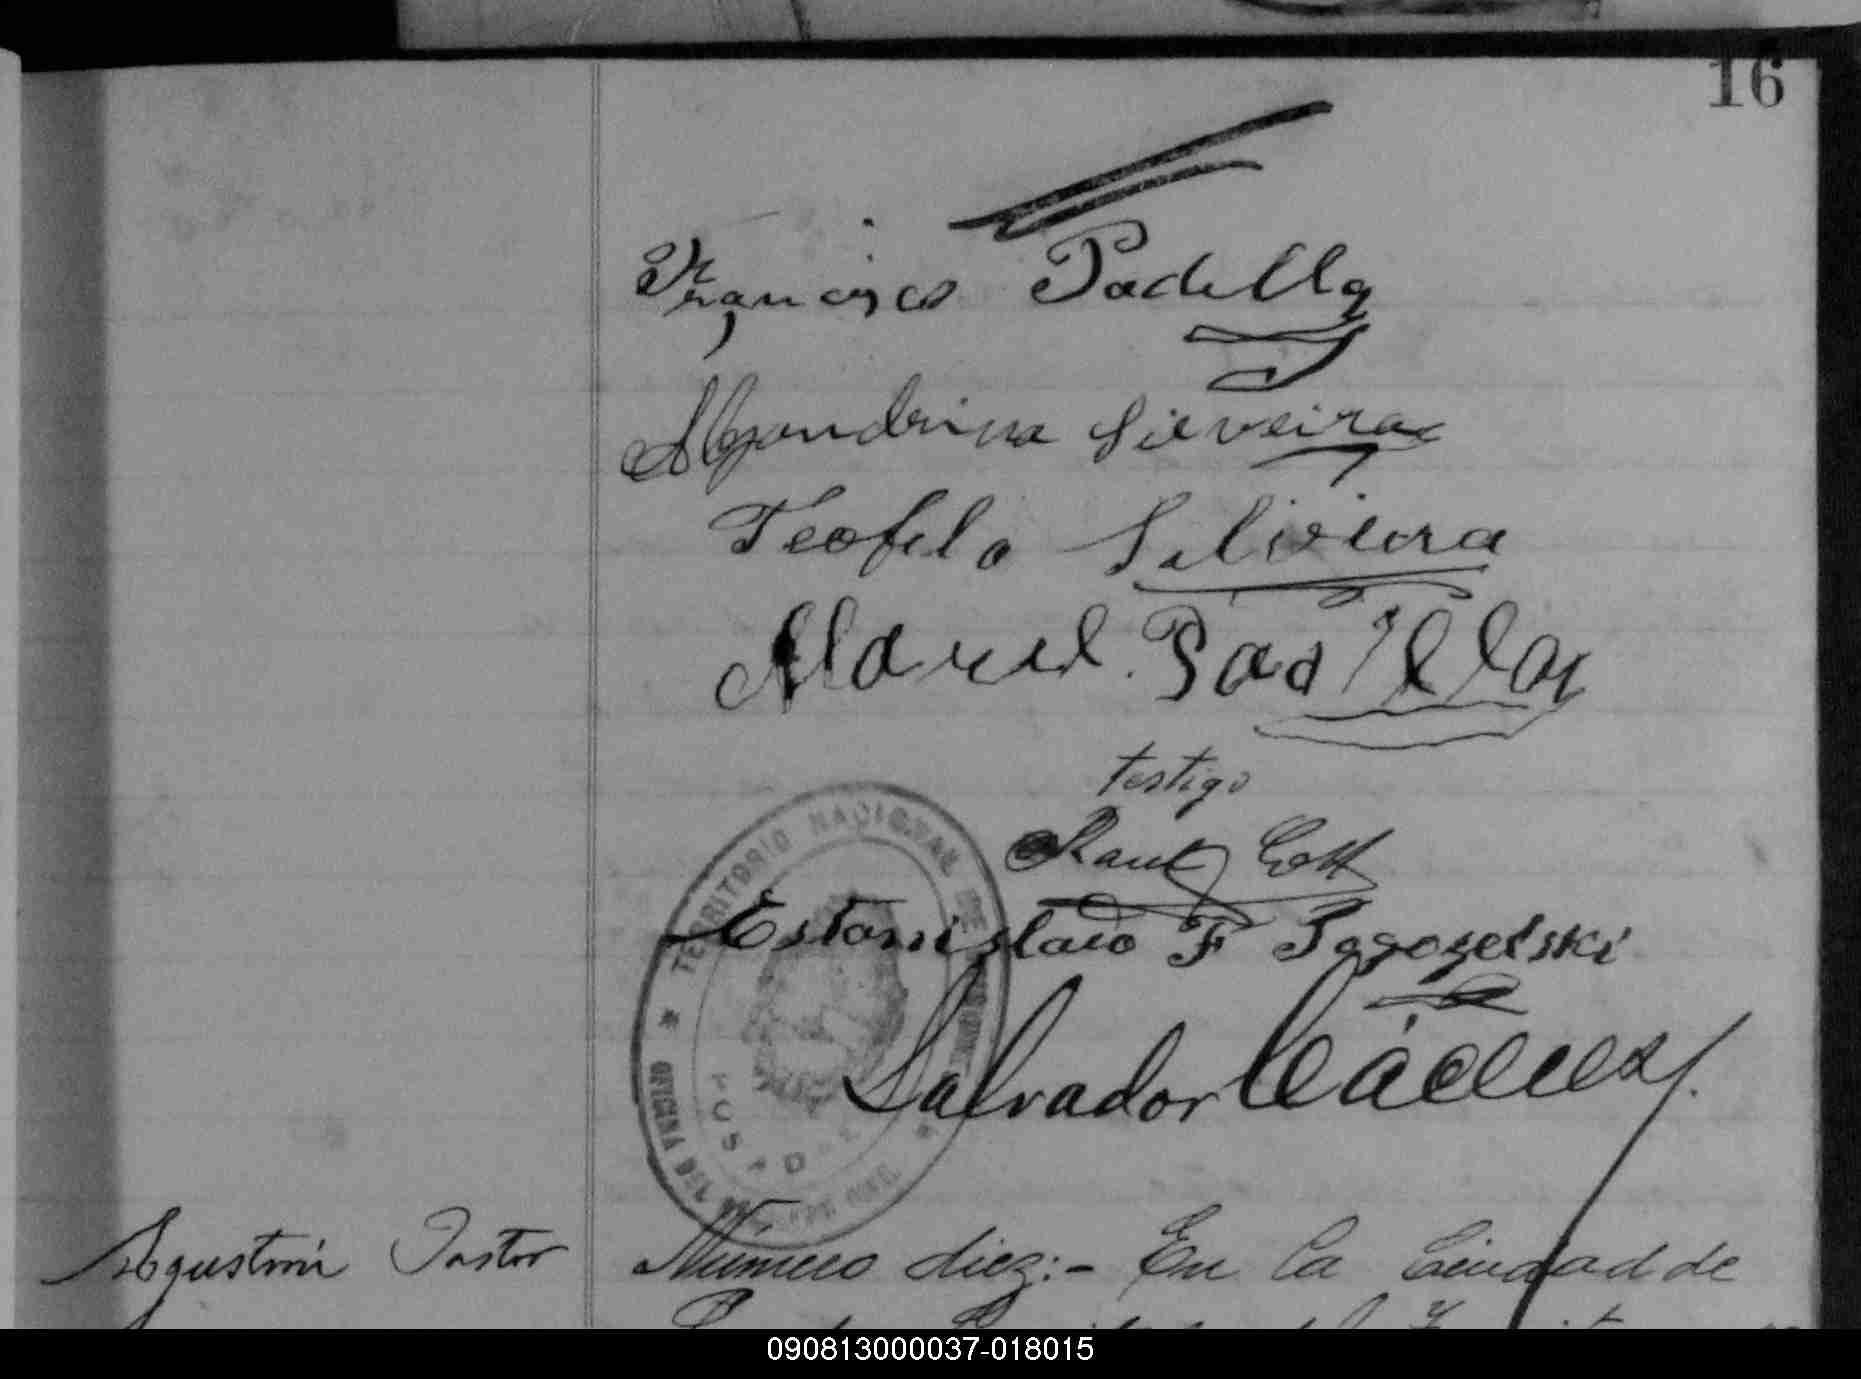 16
Francisco Padilla
Alejandrina Silveira
Teofilo Silviera
Manuel Padilla
testigo
Raul
Estanislao F Pogozelski
Salvador
TERRITORIO NACIONAL DE MISIONES
OFICINA DEL
POSADAS
Agustin Pastor
Número diez:- En la Ciudad de
090813000037-018015